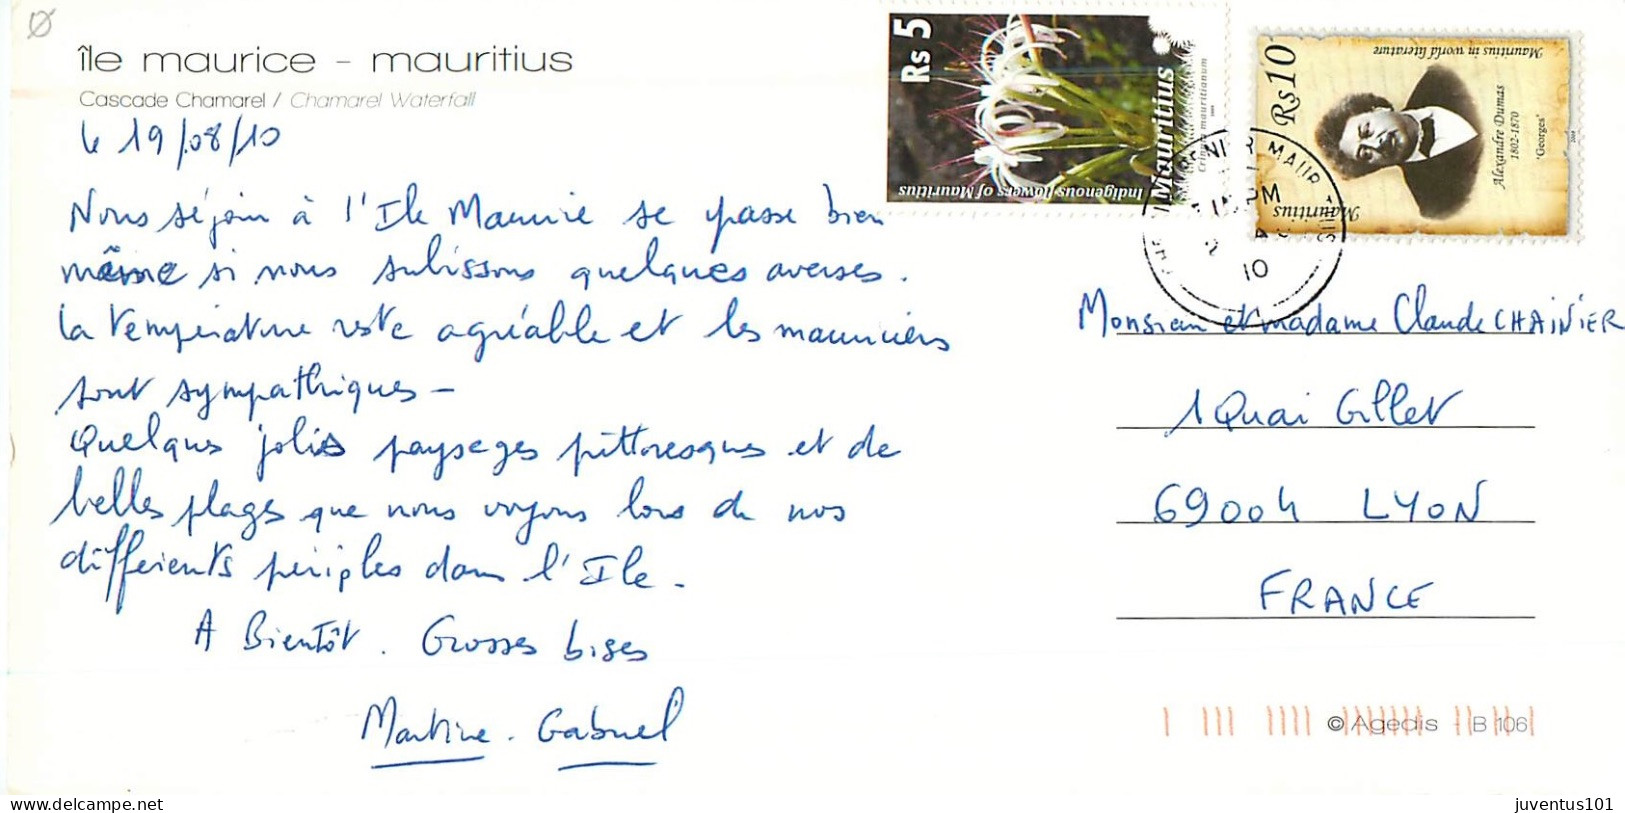 île maurice - mauritius
Cascade Chamarel / Chamarel Waterfall
le 19/08/10
Nous séjour à l'Ile Maurice se passe bien
même si nous subissons quelques averses.
la température reste agréable et les mauriciens
sont sympathiques -
Quelques jolis paysages pittoresques et de
belles plages que nous voyons lors de nos
différents périples dans l'Ile.
A Bientôt. Grosses bises
Martine. Gabriel
Rs 5
Mauritius
Crinum mauritianum
Indigenous flowers of Mauritius
Rs 10
Mauritius in world literature
Alexandre Dumas
1802-1870
'Georges'
Mauritius
10
Monsieur et madame Claude CHAINIER
1 Quai Gillet
69004 LYON
FRANCE
© Agedis - B 106
juventus101